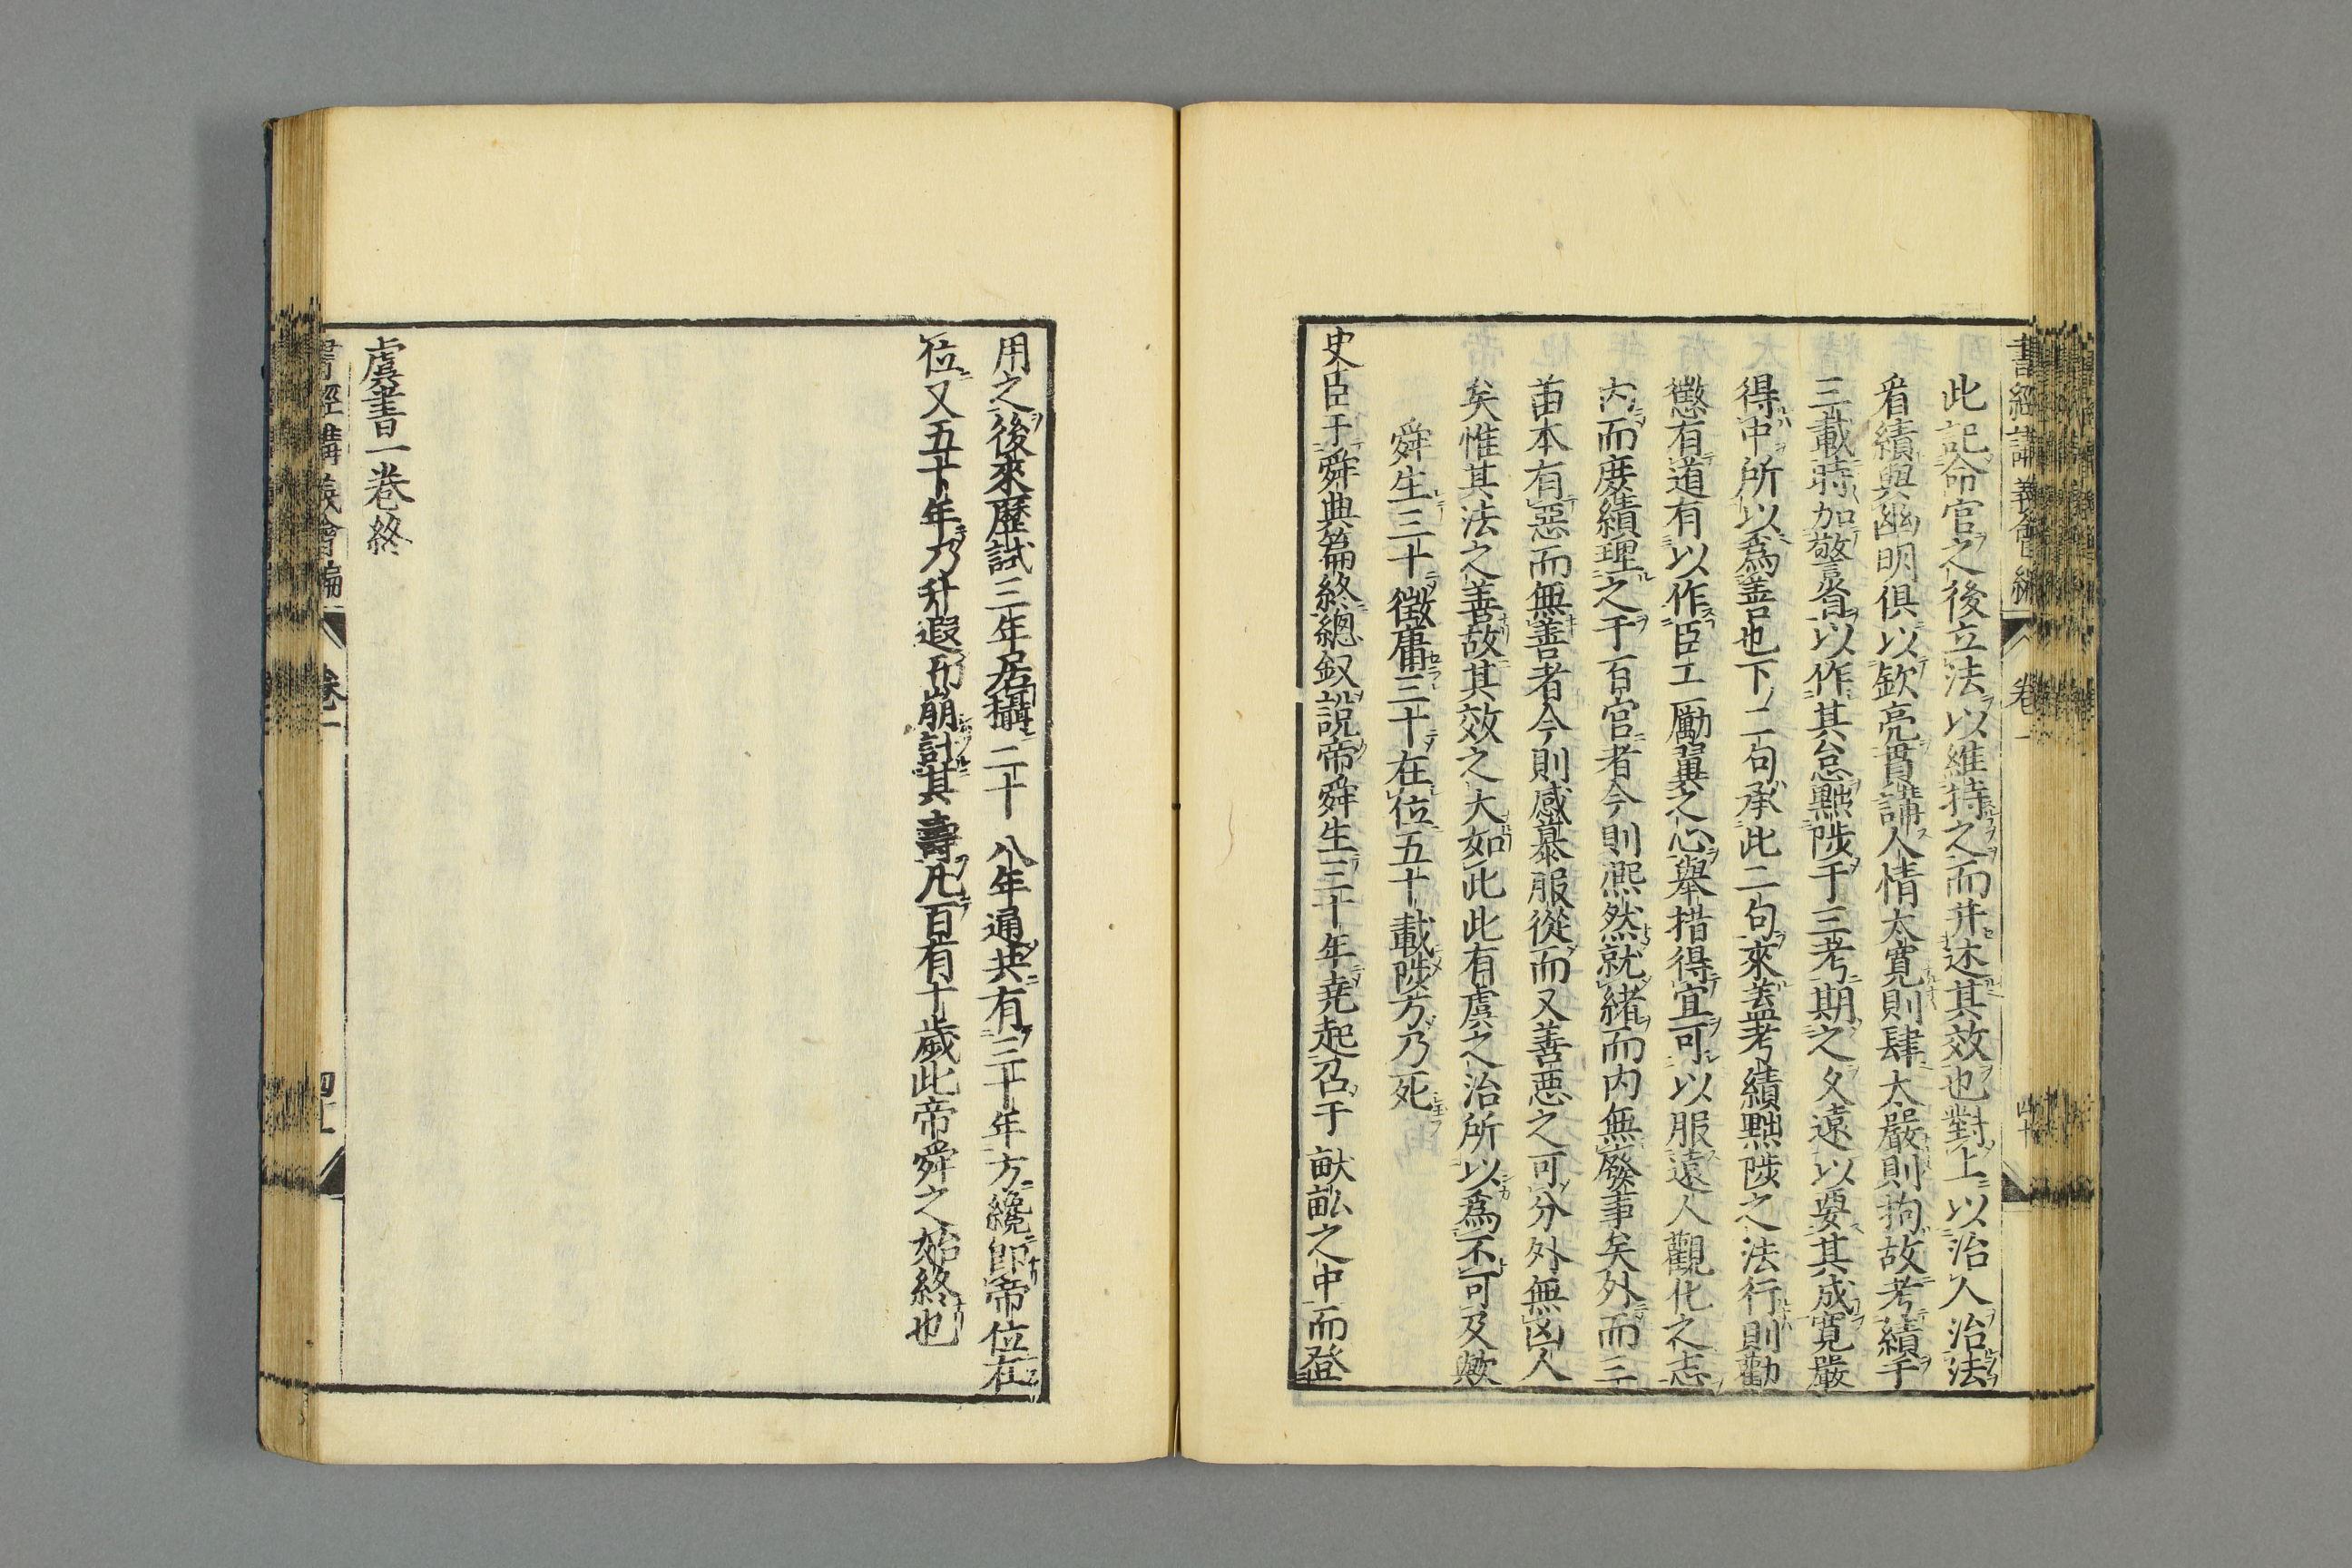 書經講義會編 卷一 四十
此記命官之後立法以維持之而幷述其效也對上以治人治法
看績與幽明俱以欽亮貫講人情太寬則肆太嚴則拘故考績于
三載時加警省以作其怠黜陟于三考期之久遠以要其成寬嚴
得中所以爲善也下二句承此二句來蓋考績黜陟之法行則勸
懲有道有以作臣工勵翼之心舉措得宜可以服遠人觀化之志
内而庶績理之于百官者今則熈然就緒而内無廢事矣外而三
苗本有惡而無善者今則感慕服從而又善惡之可分外無凶人
矣惟其法之善故其效之大如此此有虞之治所以爲不可及歟
舜生三十徵庸三十在位五十載陟方乃死
史臣于舜典篇終總叙說帝舜生三十年堯起召于畎畝之中而登
用之後來歷試三年居攝二十八年通共有三十年方纔即帝位在
位又五十年乃升遐而崩計其壽凡百有十歲此帝舜之始終也
虞書一卷終
書經講義會編 卷一